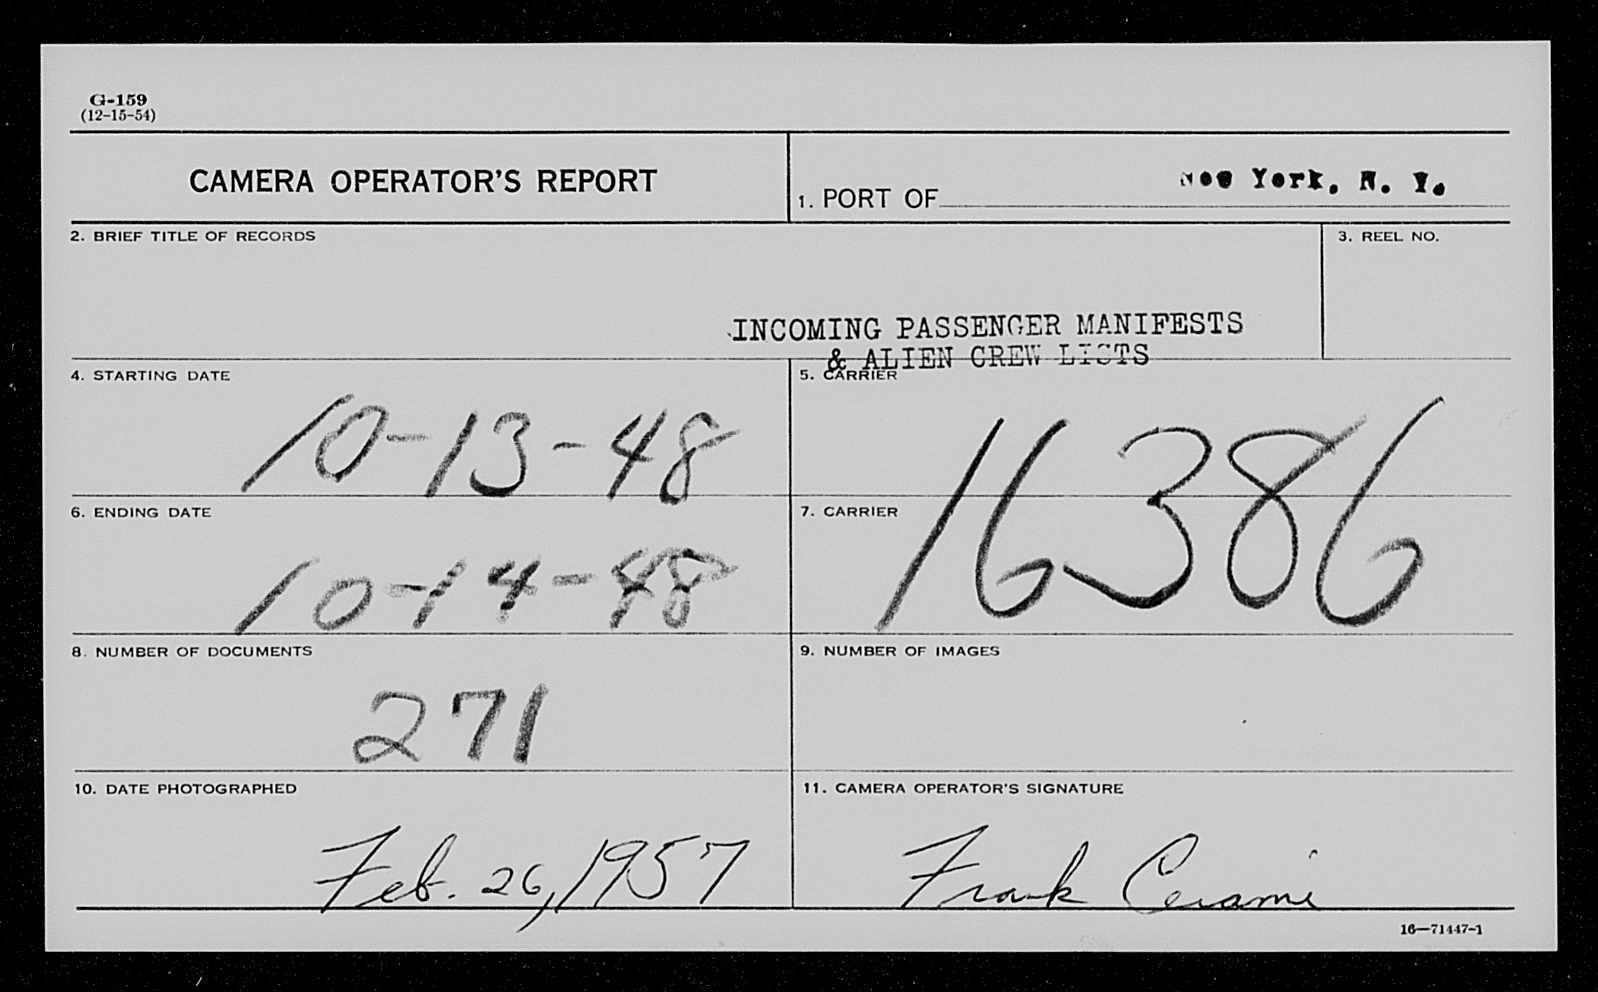 G-159
(12-15-54)
CAMERA OPERATOR'S REPORT
1. PORT OF New York, N. Y.
2. BRIEF TITLE OF RECORDS
3. REEL NO.
INCOMING PASSENGER MANIFESTS
& ALIEN CREW LISTS
4. STARTING DATE
10-13-48
5. CARRIER
16386
6. ENDING DATE
10-14-48
7. CARRIER
8. NUMBER OF DOCUMENTS
271
9. NUMBER OF IMAGES
10. DATE PHOTOGRAPHED
Feb. 26, 1957
11. CAMERA OPERATOR'S SIGNATURE
Frank Cerami
16—71447-1